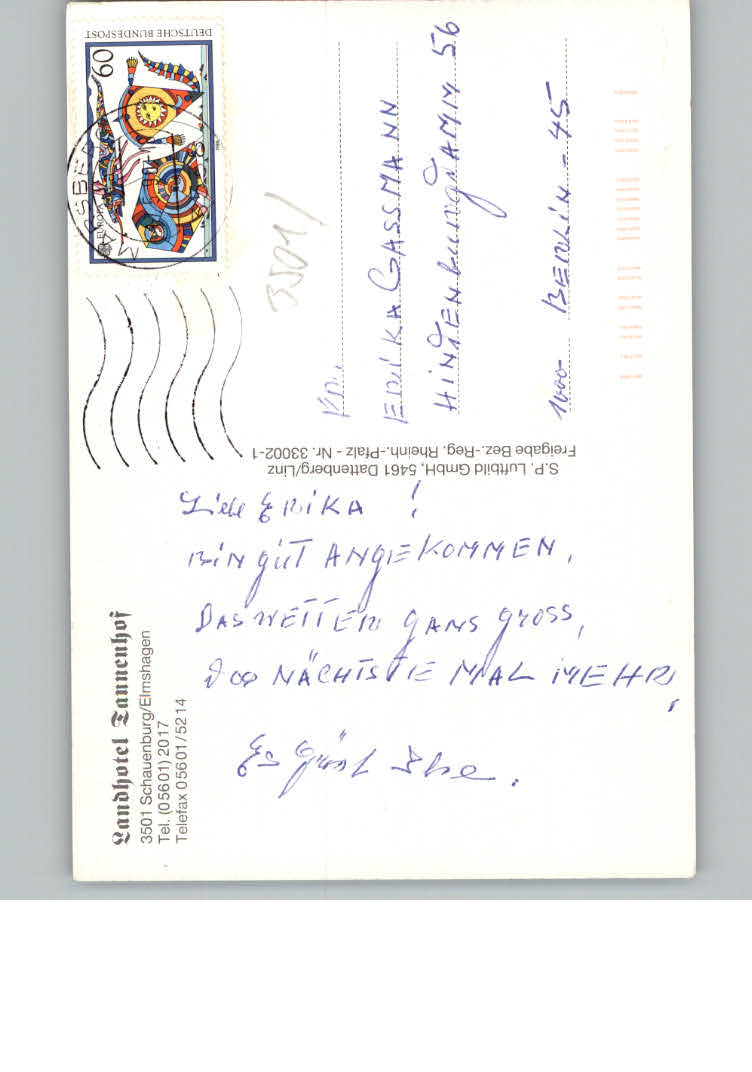 Landhotel Tannenhof
3501 Schauenburg/Elmshagen
Tel. (05601) 2017
Telefax 05601/5214
Liebe ERIKA!
BiN gUT ANGEKOMMEN,
DAS WETTER gANS gROSS,
DAS NÄCHSTE MAL MEHR,
Es grüßt
S.P. Luftbild GmbH, 5461 Dattenberg/Linz
Freigabe Bez.-Reg. Rheinh.-Pfalz - Nr. 33002-1
DEUTSCHE BUNDESPOST
60
EUROPA
3501/
ERiKA GASSMANN
HiNDENburgdAMM 56
1000 BERLiN - 45